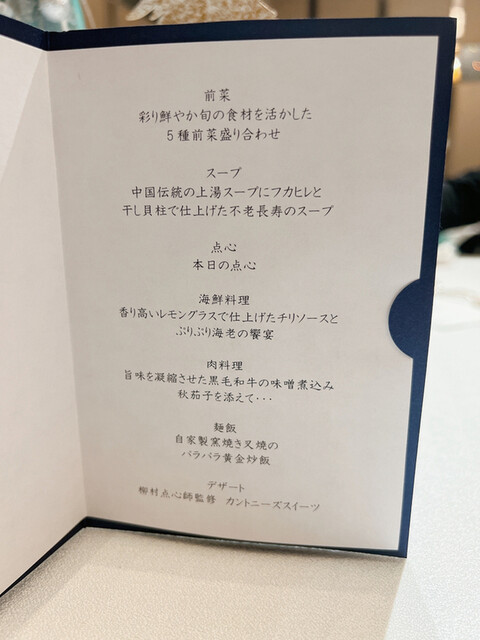 前菜
彩り鮮やか旬の食材を活かした
5種前菜盛り合わせ
スープ
中国伝統の上湯スープにフカヒレと
干し貝柱で仕上げた不老長寿のスープ
点心
本日の点心
海鮮料理
香り高いレモングラスで仕上げたチリソースと
ぷりぷり海老の饗宴
肉料理
旨味を凝縮させた黒毛和牛の味噌煮込み
秋茄子を添えて・・・
麺飯
自家製窯焼き叉焼の
パラパラ黄金炒飯
デザート
柳村点心師監修 カントニーズスイーツ